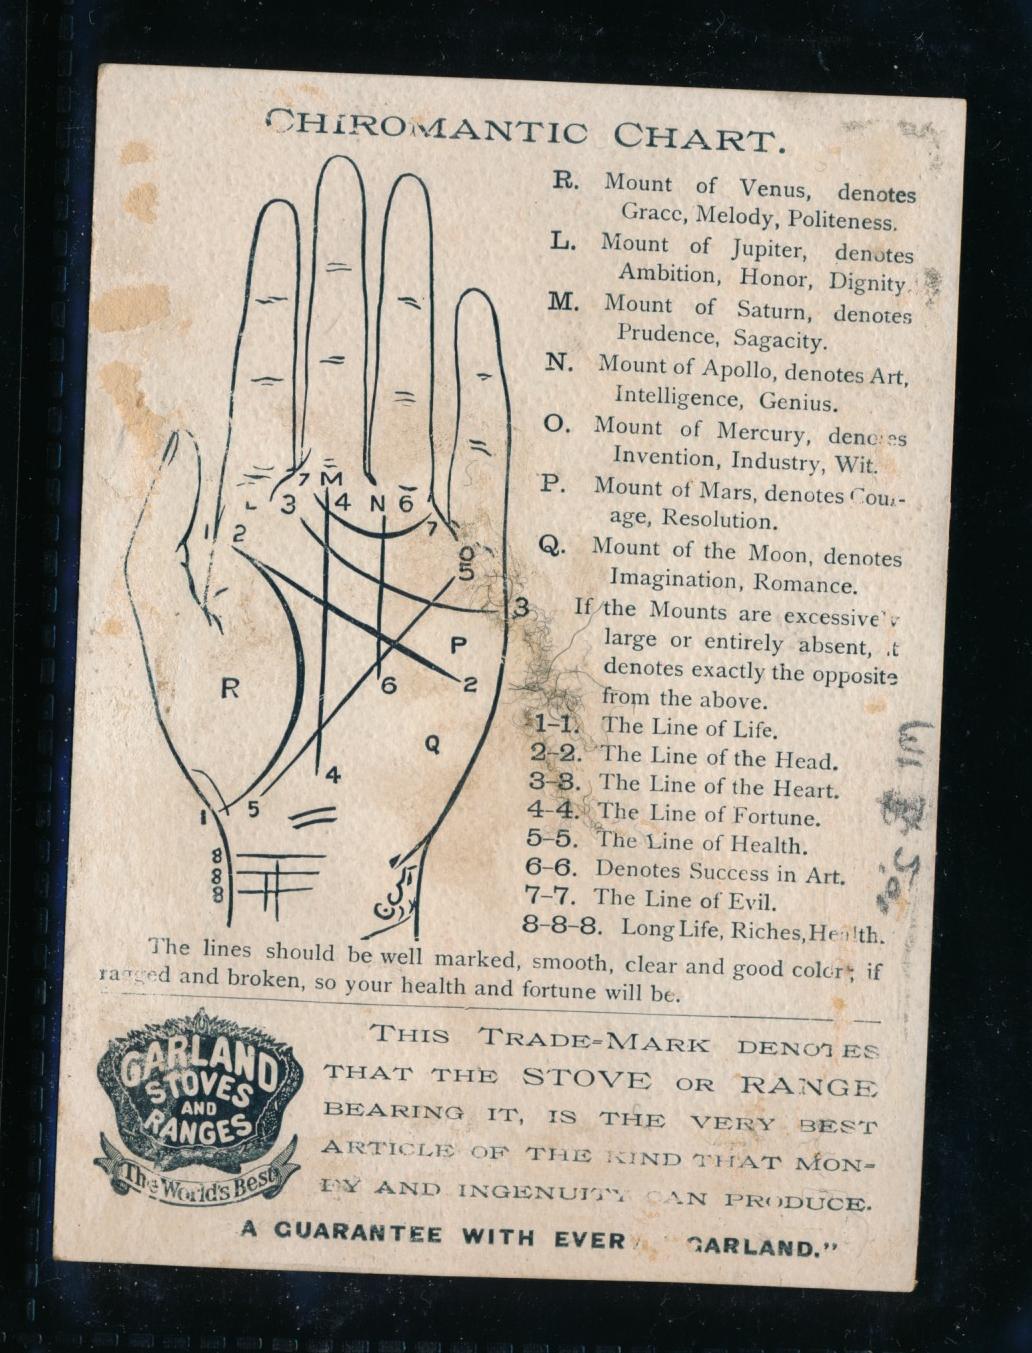 CHIROMANTIC CHART.
R. Mount of Venus, denotes
Grace, Melody, Politeness.
L. Mount of Jupiter, denotes
Ambition, Honor, Dignity.
M. Mount of Saturn, denotes
Prudence, Sagacity.
N. Mount of Apollo, denotes Art,
Intelligence, Genius.
O. Mount of Mercury, denotes
Invention, Industry, Wit.
P. Mount of Mars, denotes Cour-
age, Resolution.
Q. Mount of the Moon, denotes
Imagination, Romance.
If the Mounts are excessively
large or entirely absent, it
denotes exactly the opposite
from the above.
1-1. The Line of Life.
2-2. The Line of the Head.
3-3. The Line of the Heart.
4-4. The Line of Fortune.
5-5. The Line of Health.
6-6. Denotes Success in Art.
7-7. The Line of Evil.
8-8-8. Long Life, Riches, Health.
7 M
L 3 4 N 6
1 2 7
O
5
3
P
R 6 2
Q
4
1 5
8
8
8
The lines should be well marked, smooth, clear and good color; if
ragged and broken, so your health and fortune will be.
GARLAND
STOVES
AND
RANGES
The World's Best
THIS TRADE=MARK DENOTES
THAT THE STOVE OR RANGE
BEARING IT, IS THE VERY BEST
ARTICLE OF THE KIND THAT MON=
EY AND INGENUITY CAN PRODUCE.
A GUARANTEE WITH EVERY "GARLAND."